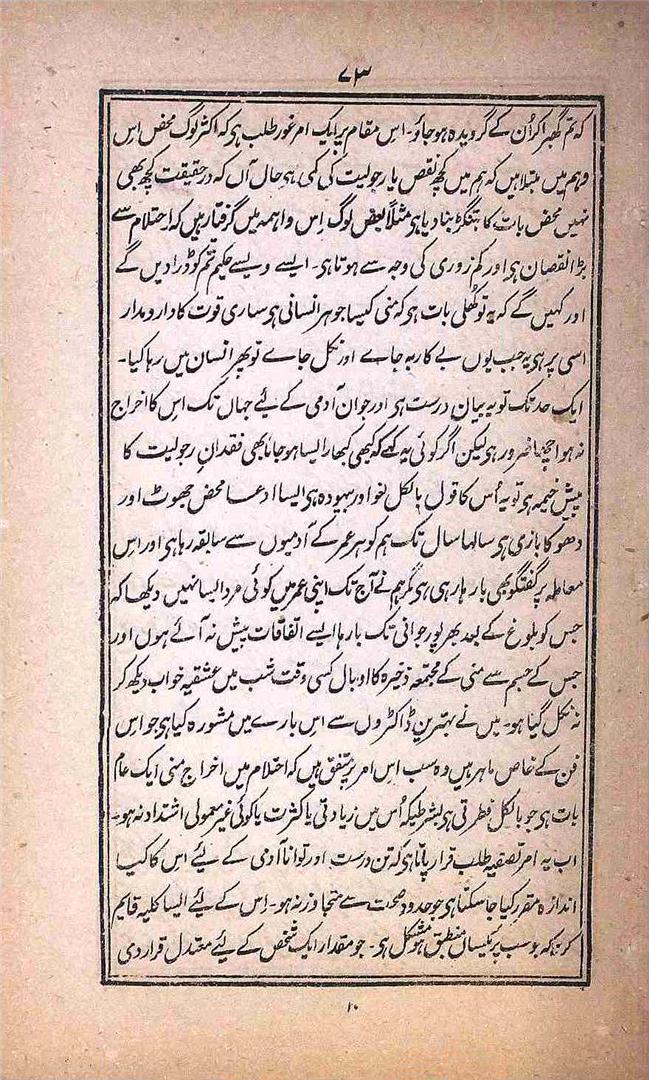 ۷۳
کہ تم گھبرا کر اُن کے گرویدہ ہو جاؤ۔ اس مقام پر ایک امر غور طلب ہی کہ اکثر لوگ محض اس
وہم میں مبتلا ہیں کہ ہم میں کچھ نقص یا رجولیت کی کمی ہی حال آں کہ در حقیقت کچھ بھی
نہیں محض بات کا بتنگڑ بنا دیا ہی مثلاً بعض لوگ اِس واہمہ میں گرفتار ہیں کہ احتلام سے
بڑا نقصان ہی اور کم زوری کی وجہ سے ہوتا ہی۔ ایسے ویسے حکیم تم کو ڈرا دیں گے
اور کہیں گے کہ یہ تو کُھلی بات ہو کہ منی کیسا جوہر انسانی ہی ساری قوت کا دار و مدار
اسی پر ہی یہ جب یوں بے کار بہ جاے اور نکل جاے تو پھر انسان میں رہا کیا۔
ایک حد تک تو یہ بیان درست ہی اور جوان آدمی کے لیئے جہاں تک اس کا اخراج
نہ ہو اچھا ضرور ہی لیکن اگر کوئی یہ کہے کہ کبھی کبھار ایسا ہو جانا بھی فقدانِ رجولیت کا
پیش خیمہ ہی تو یہ اُس کا قول بالکل لغو اور بیہودہ ہی ایسا ادعا محض جھوٹ اور
دھوکا بازی ہی سالہا سال تک ہم کو ہر عمر کے آدمیوں سے سابقہ رہا ہی اور اس
معاملہ پر گفتگو بھی بارہا رہی ہی مگر ہم نے آج تک اپنی عمر میں کوئی مرد ایسا نہیں دیکھا کہ
جس کو بلوغ کے بعد بھرپور جوانی تک بارہا ایسے اتفاقات پیش نہ آئے ہوں اور
جس کے جسم سے منی کے مجتمعہ ذخیرہ کا اوبال کسی وقت شب میں عشقیہ خواب دیکھ کر
نہ نکل گیا ہو۔ میں نے بہترین ڈاکٹروں سے اس بارے میں مشورہ کیا ہی جو اس
فن کے خاص ماہر ہیں وہ سب اس امر پر متفق ہیں کہ احتلام میں اخراج منی ایک عام
بات ہی جو بالکل فطرتی ہی بشرطیکہ اُس میں زیادتی یا کثرت یا کوئی غیر معمولی اشتداد نہ ہو۔
اب یہ امر تصفیہ طلب قرار پاتا ہی کہ تن درست اور توانا آدمی کے لیئے اس کا کیا
اندازہ مقرر کیا جا سکتا ہی جو حدود صحت سے متجاوز نہ ہو۔ اِس کے لیئے ایسا کلیہ قایم
کرنا کہ جو سب پر یکساں منطبق ہو مشکل ہی۔ جو مقدار ایک شخص کے لیئے معتدل قرار دی
۱۰